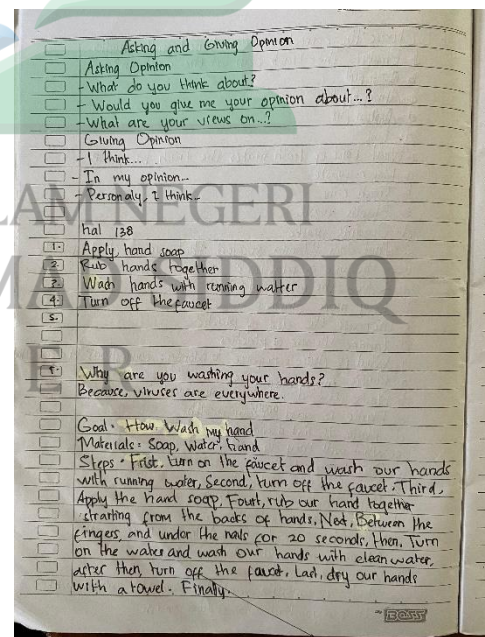 Asking and Giving Opinion
Asking Opinion
- What do you think about?
- Would you give me your opinion about...?
- What are your views on...?
Giving Opinion
- I think...
- In my opinion...
- Personaly, I think...
LAM NEGERI
hal 138
1. Apply, hand soap
2. Rub hands together
MA SIDDIQ
3. Wash hands with running watter
4. Turn off the faucet
5.
E R
1. Why are you washing your hands?
Because, viruses are everywhere.
Goal: How Wash my hand
Materials: Soap, Water, hand
Steps: Frist, turn on the faucet and wash our hands
with running water, Second, turn off the faucet, Third,
Apply the hand soap, Fourt, rub our hand together
strarting from the backs of hands, Next, Between the
fingers, and under the nails for 20 seconds, then, Turn
on the water and wash our hands with clean water,
after then, turn off the faucet, Last, dry our hands
with a towel. Finally.
BOSS